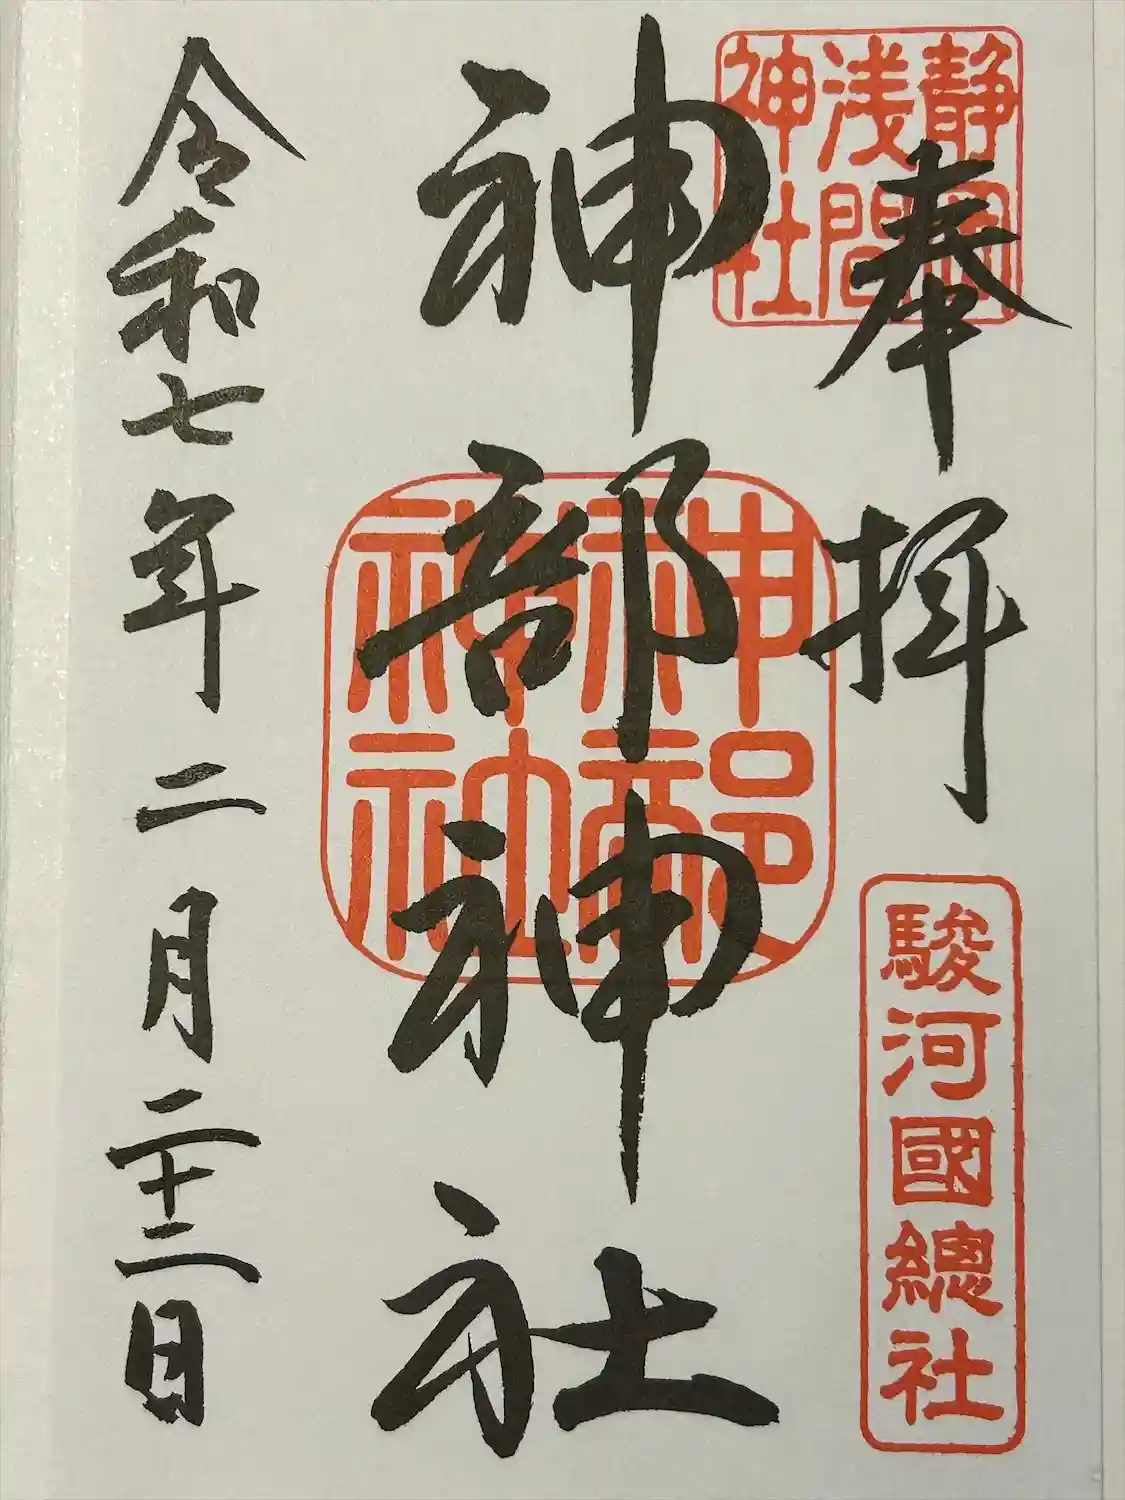 奉拝
静岡
浅間
神社
駿河國總社
神部神社
神部
神社
令和七年二月二十二日